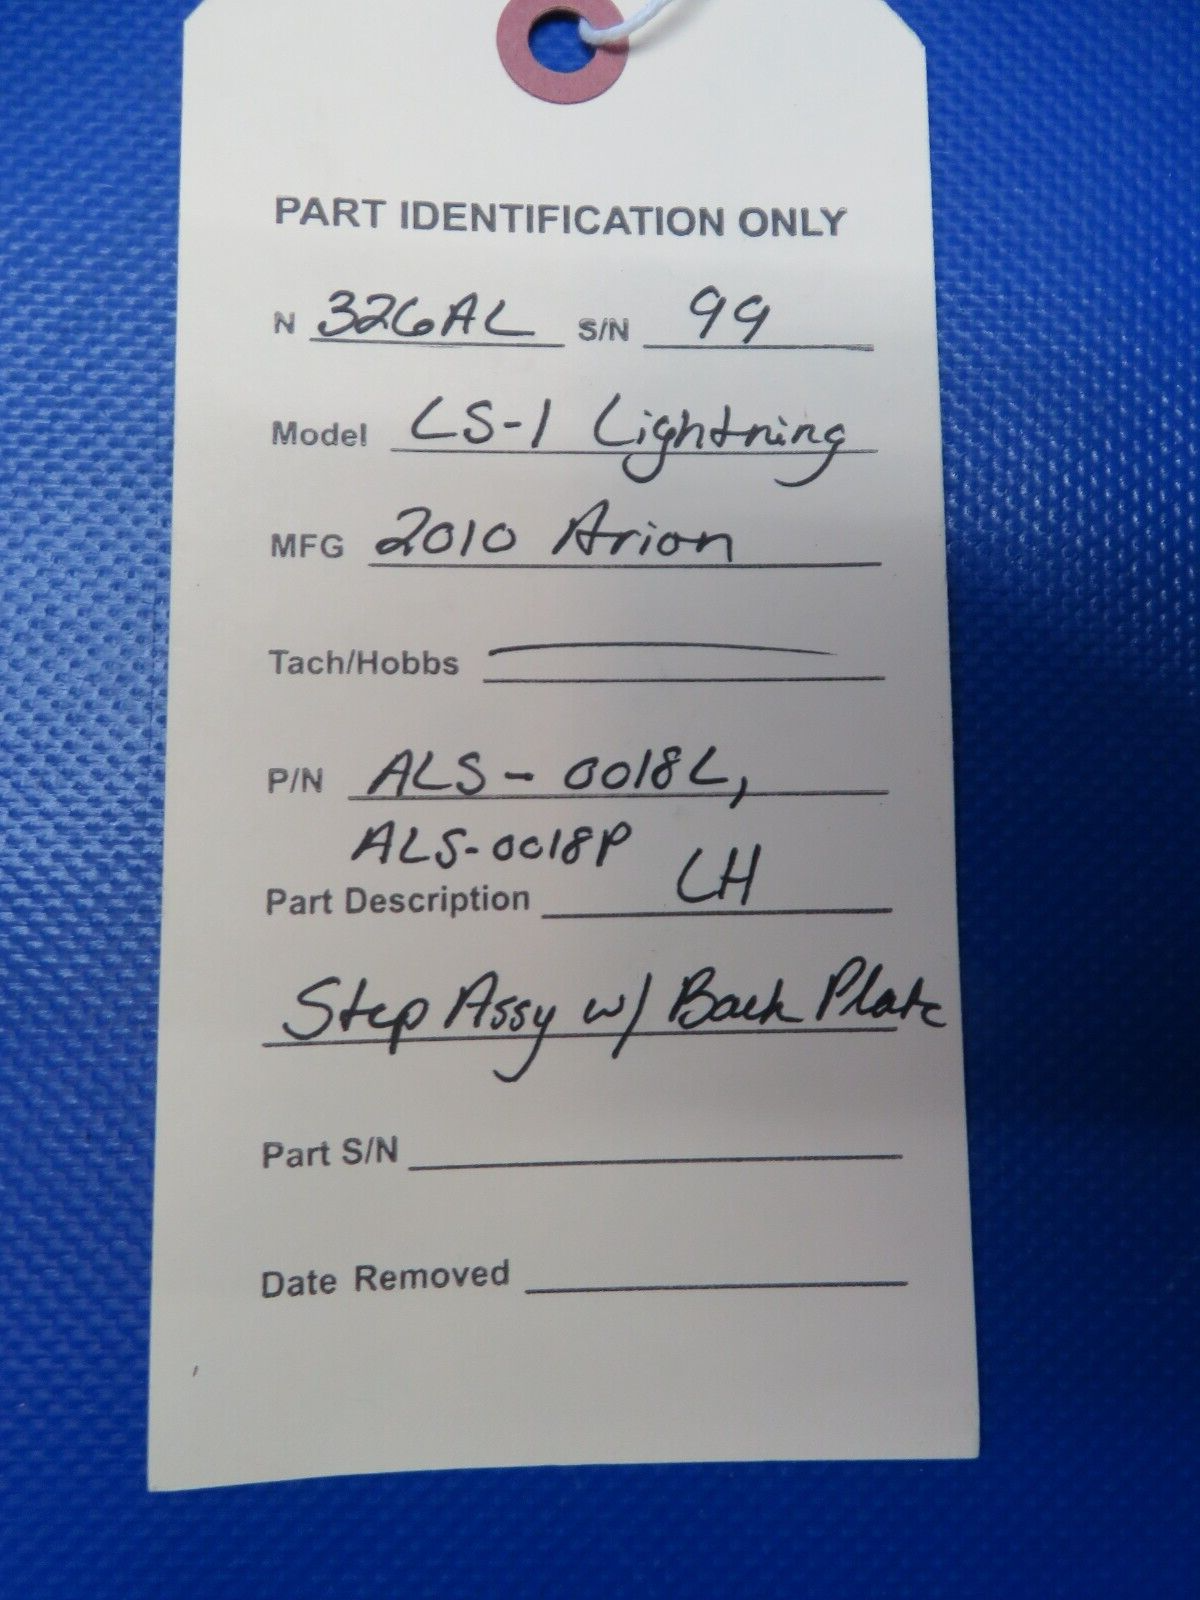 PART IDENTIFICATION ONLY
N 326AL S/N 99
Model LS-1 Lightning
MFG 2010 Arion
Tach/Hobbs
P/N ALS-0018L,
ALS-0018P
Part Description LH
Step Assy w/ Back Plate
Part S/N
Date Removed